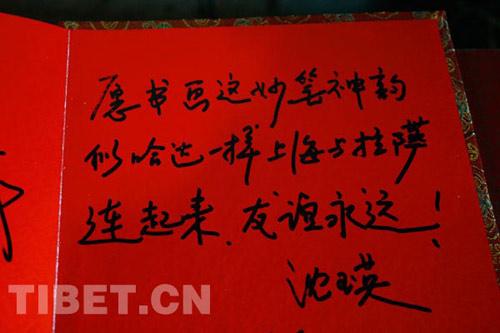 愿书画这妙笔神韵
似哈达一样上海与拉萨
连起来，友谊永远！
沈瑛
TIBET.CN